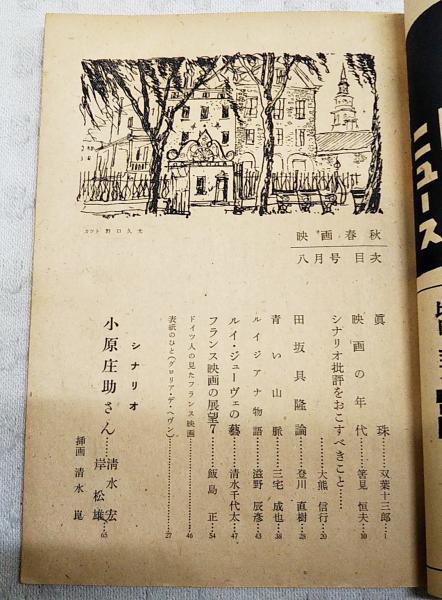 カツト 野口久光
映画春秋
八月号 目次
眞珠……双葉十三郎…1
映画の年代……筈見恒夫…10
シナリオ批評をおこすべきこと……大熊信行…20
田坂具隆論……登川直樹…28
青い山脈……三宅成也…38
ルイジアナ物語……滋野辰彦…43
ルイ・ジューヴェの藝……清水千代太…47
フランス映画の展望7……飯島正…54
ドイツ人の見たフランス映画……46
表紙のひと(グロリア・デ・ヘヴン)……27
シナリオ
小原庄助さん……清水宏
岸松雄…65
挿画 清水崑
ニュース